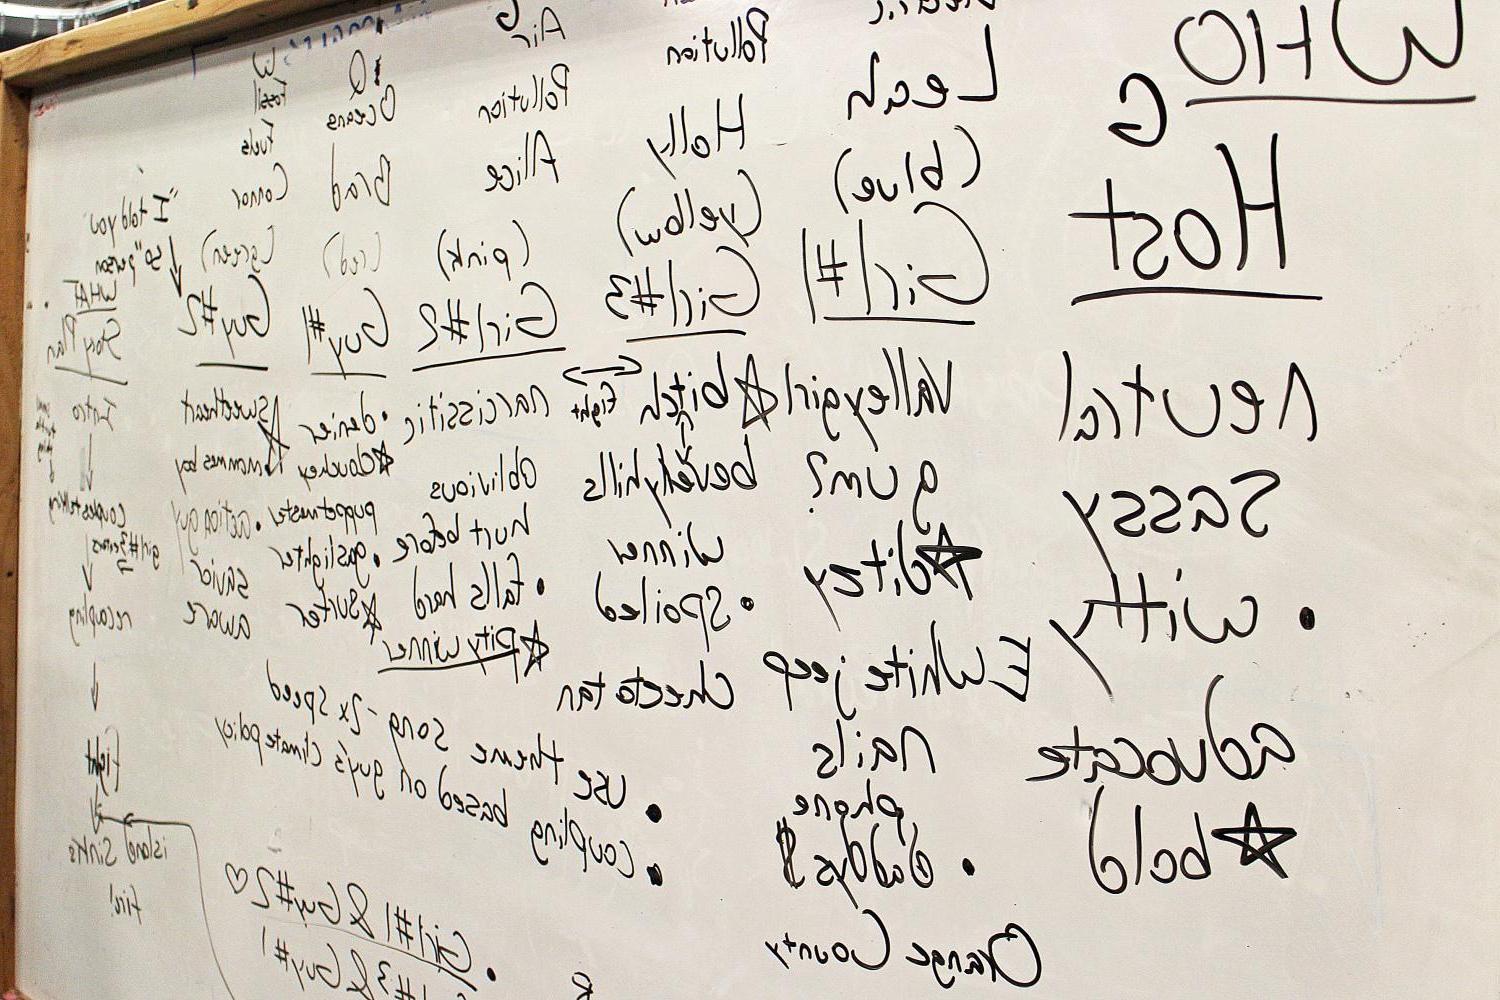 WHO
G
Host
neutral
sassy
• witty
advocate
☆ bold
Leah
(blue)
Girl #1
Valleygirl
gum?
☆ ditzy
E White jeep
nails
phone
• daddys $
Orange County
Pollution
Holly
(yellow)
Girl #3
☆ bitch
beverlyhills
winner
• spoiled
cheetatan
fight
G
Air
Pollution
Alice
(pink)
Girl #2
narcissitic
oblivious
hurt before
• falls hard
☆ pity winner
Q
Oceans
Brad
(red)
Guy #1
• denier
☆ douchey
puppetmaster
• gaslighter
☆ surfer
W
Fossil
Fuels
Connor
(green)
Guy #2
sweetheart
☆ mommas boy
• action guy
savior
aware
"I told you
so" person
WHAT
Story Plan
Intro
couples talking
girl #3 enters
recoupling
fight
island sinks
fin!
• use theme song - 2x speed
• coupling based on guy's climate policy
• Girl #1 & Guy #2 ♡
#3 & Guy #1